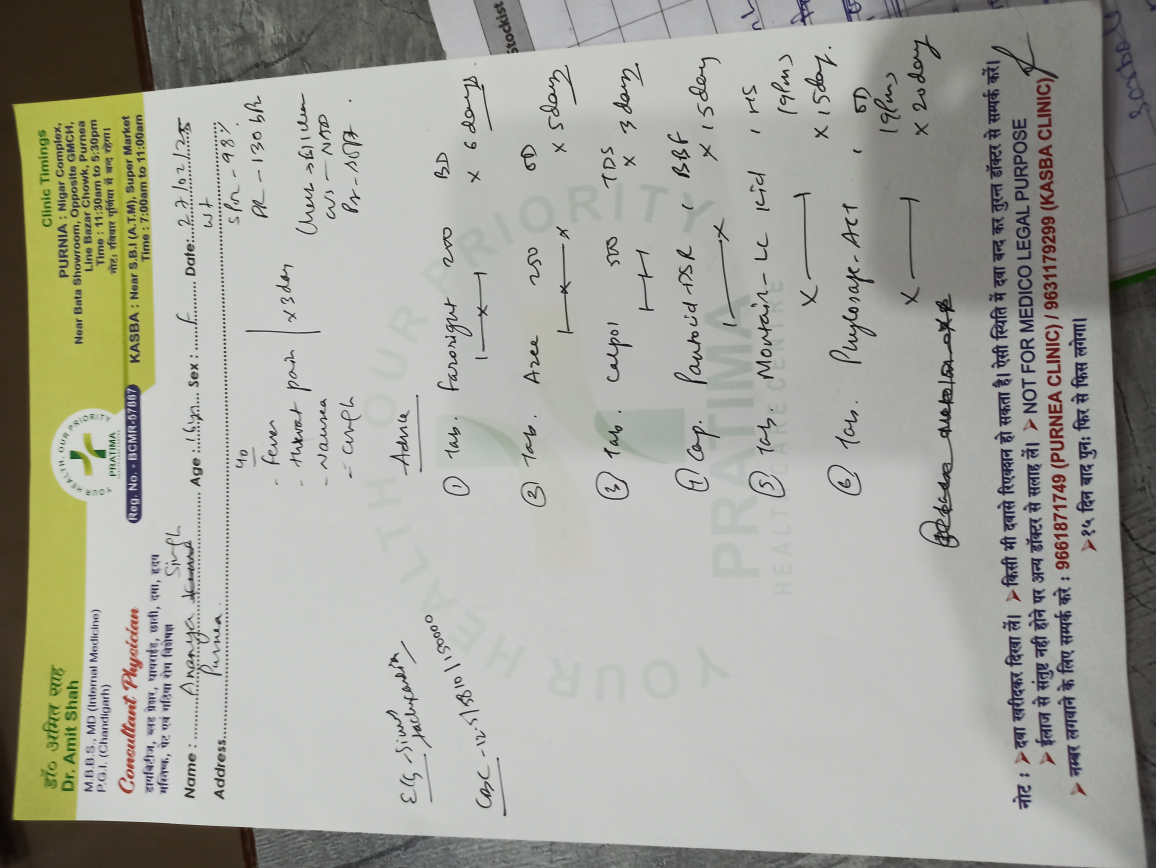 डॉ० अमित साह
Dr. Amit Shah
M.B.B.S., MD (Internal Medicine)
P.G.I. (Chandigarh)
Consultant Physician
डायबिटीज, ब्लड प्रेशर, थायराईड, छाती, दमा, हृदय
मस्तिष्क, पेट एवं गठिया रोग विशेषज्ञ
YOUR HEALTH, OUR PRIORITY
PRATIMA
Reg. No. - BCMR-57887
Clinic Timings
PURNIA : Nigar Complex,
Near Bata Showroom, Opposite GMCH,
Line Bazar Chowk, Purnea
Time : 11:30am to 5:30pm
नोट: रविवार पूर्णिया में बन्द रहेगा।
KASBA : Near S.B.I (A.T.M), Super Market
Time : 7:00am to 11:00am
Name : Ananya Singh Age : Sex : F Date: 27/02/25
Address Purnea.
Wt
SPO2 - 98%
PR - 130 b/m
C/O
- Fever
- throat pain
- Nausea
- Cough
x 3 day
Chest → B/L clear
CVS - NAD
Advice
ECG - Sinus tachycardia
CBC - 12.5/5810/150000
① Tab. Faronight 200 BD
1 — x — 1 x 6 days.
② Tab. Azee 250 OD
1 — x — x x 5 days
③ Tab. Calpol 500 TDS
1—1—1 x 3 days
④ Cap. Pantocid-DSR 1 BBF
1 — x x 15 day
⑤ Tab. Montair-LC Kid 1 HS
x — 1 x 15 day.
⑥ Tab. Phylosage-Act 1 OD
x — 1 x 20 day
YOUR HEALTH OUR PRIORITY
PRATIMA
HEALTH CARE CENTRE
नोट : ➤ दवा खरीदकर दिखा लें। ➤ किसी भी दवासे रिएक्शन हो सकता है। ऐसी स्थिति में दवा बन्द कर तुरन्त डॉक्टर से सम्पर्क करें।
➤ ईलाज से संतुष्ट नही होने पर अन्य डॉक्टर से सलाह लें। ➤ NOT FOR MEDICO LEGAL PURPOSE
➤ नम्बर लगवाने के लिए सम्पर्क करे : 9661871749 (PURNEA CLINIC) / 9631179299 (KASBA CLINIC)
➤ १५ दिन बाद पुनः फिर से फिस लगेगा।
Stockist